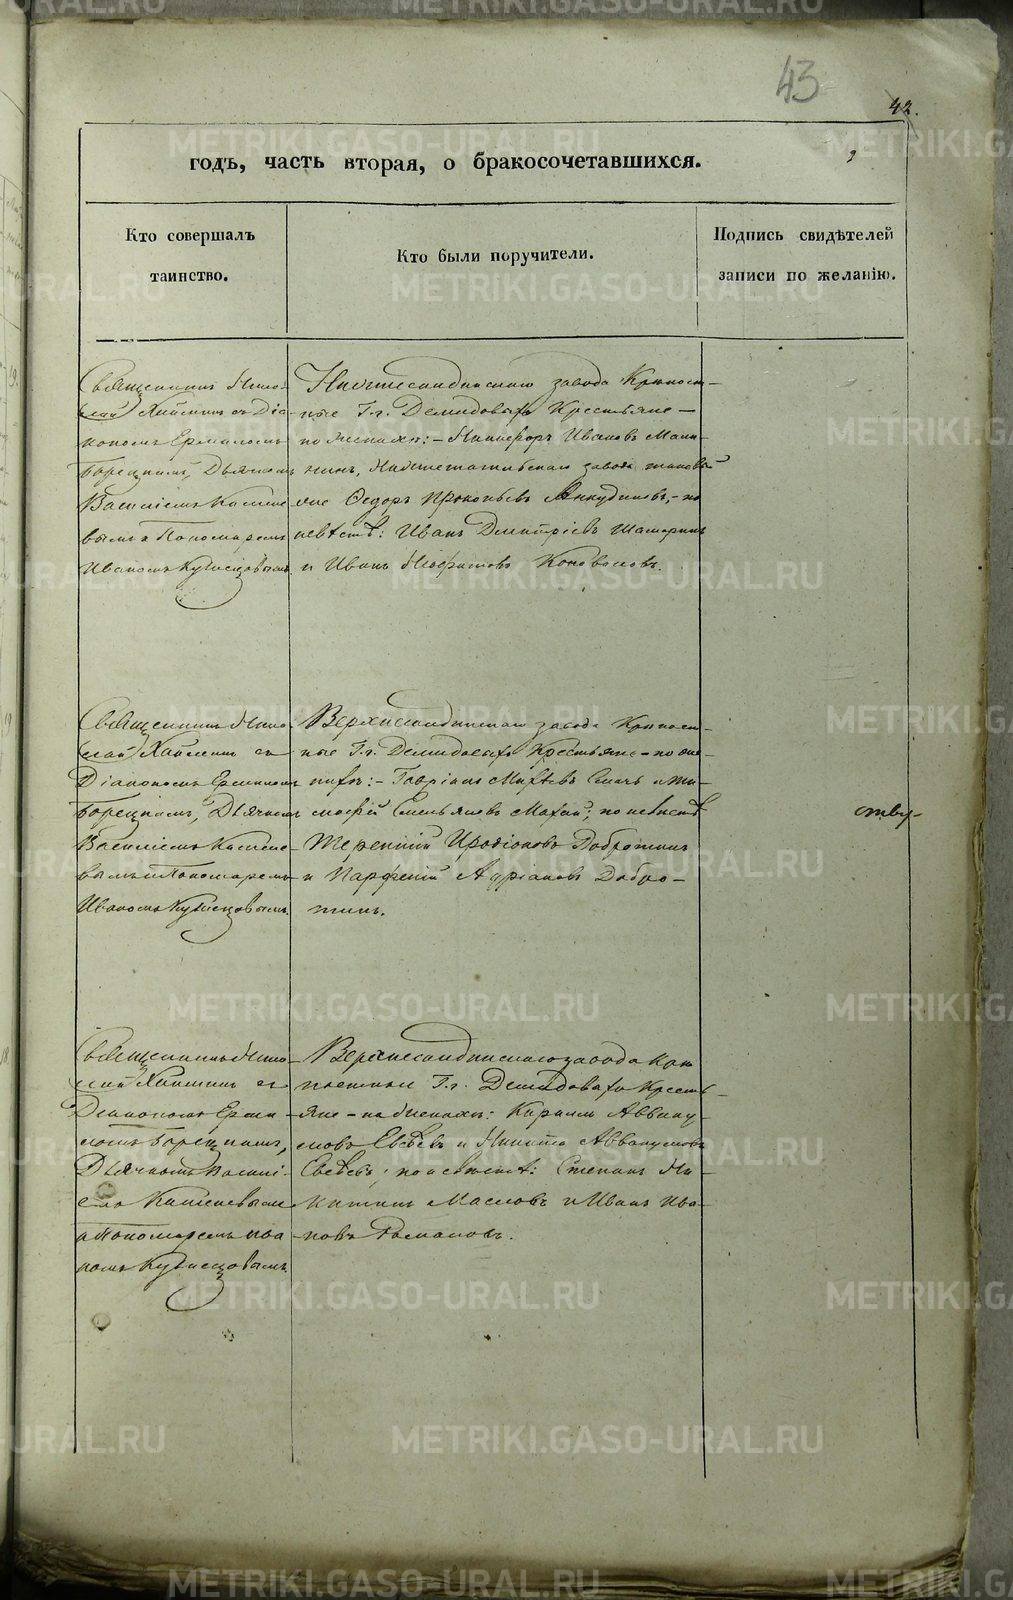 43
42.
годъ, часть вторая, о бракосочетавшихся.
Кто совершалъ
таинство.
Кто были поручители.
Подпись свидѣтелей
записи по желанію.
Священникъ Нико-
лай Хлынинъ съ Діа-
кономъ
Борецкимъ, Дьячкомъ
Василіемъ
вымъ и Пономаремъ
Иваномъ Кузнецовымъ.
Нижнесалдинскаго завода Крѣпост-
ные Г.г. Демидовыхъ Крестьяне –
по женихѣ: – Никифоръ Ивановъ Мали-
нинъ, Нижнетагильскаго завода таковы
же Ѳедоръ Прокопьевъ Анкудиновъ, – по
невѣстѣ: Иванъ Дмитріевъ
и Иванъ Коноваловъ.
Священникъ Нико-
лай съ
Діакономъ
Борецкимъ, Дьячкомъ
Василіемъ
вымъ и Пономаремъ
Иваномъ Кузнецовымъ.
Верхнесалдинскаго завода Крѣпост-
ные Г.г. Демидовыхъ Крестьяне – по же-
нихѣ: – Гавріилъ и Ти-
мофей Емельяновъ по невѣстѣ
Терентій Иродіоновъ Добротинъ
и Парфеній Адріановъ Добро-
тинъ.
ству-
Священникъ Нико-
лай съ
Діакономъ
Борецкимъ,
Дьячкомъ Василі-
емъ
и Пономаремъ Ива-
номъ Кузнецовымъ.
Верхнесалдинскаго завода Крѣ-
постные Г.г. Демидовыхъ Кресть-
яне – по женихѣ: Кириллъ Аввану-
мовъ Евсѣевъ и Никита Аввакумовъ
Евсѣевъ; по невѣстѣ: Степанъ Ни-
китинъ Масловъ и Иванъ Ива-
новъ Романовъ.
METRIKI.GASO-URAL.RU